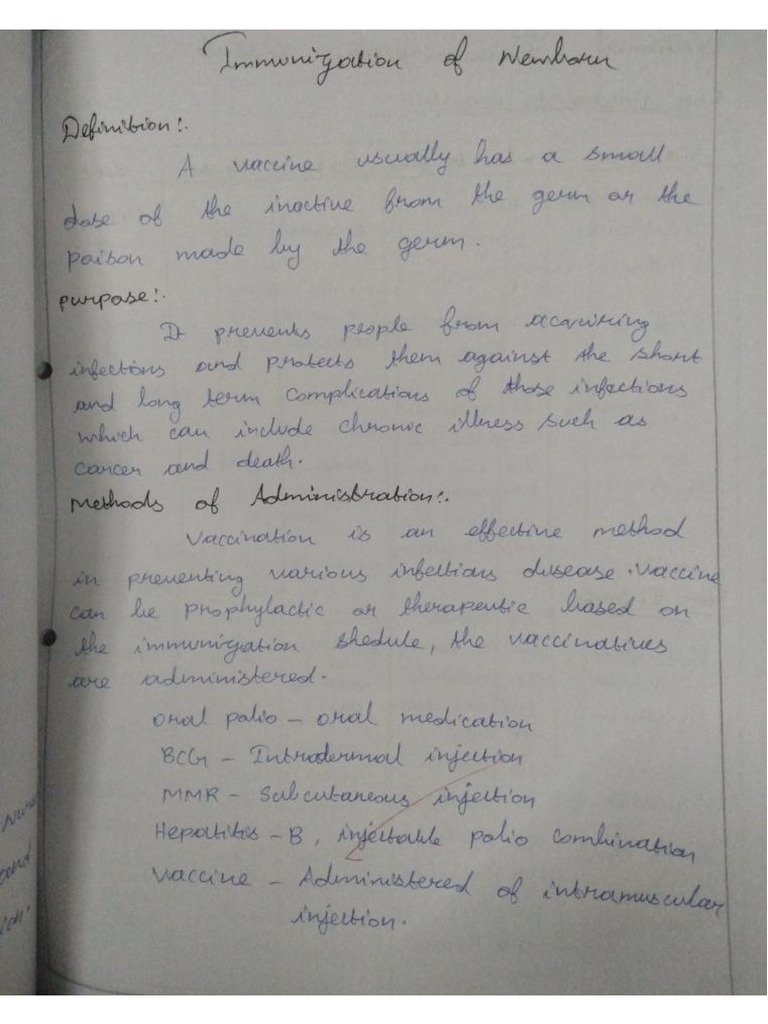 Immunization of Newborn
Definition:.
A vaccine usually has a small
dose of the inactive from the germ or the
poison made by the germ.
purpose:.
It prevents people from accquiring
infections and protects them against the short
and long term complications of those infections
which can include chronic illness such as
cancer and death.
Methods of Administration:.
Vaccination is an effective method
in preventing various infections disease. vaccine
can be prophylactic or therapeutic based on
the immunization shedule, the vaccinatives
are administered.
Oral polio - oral medication
BCG - Intradermal injection
MMR - Subcutaneous injection
Hepatities - B, injectable polio combination
vaccine - Administered of intramuscular
injection.
and